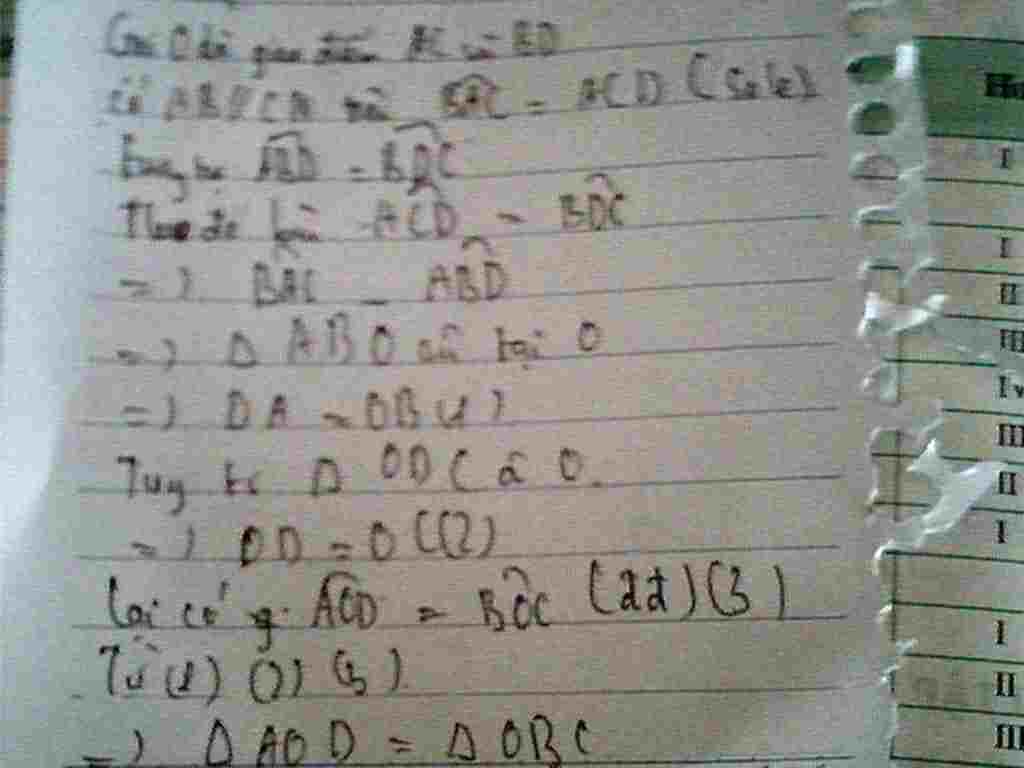 Gọi O là giao điểm AC và BD
Có AB//CD nên BAC = ACD (Sole)
Tương tự ABD = BDC
Theo đề bài ACD = BDC
=> BAC = ABD
=> Δ ABO cân tại O
=> OA = OB (1)
Tương tự Δ ODC cân O.
=> OD = OC (2)
Lại có góc AOD = BOC (dd) (3)
Từ (1) (2) (3)
=> Δ AOD = Δ OBC
I
I
II
III
IV
III
II
I
I
II
III